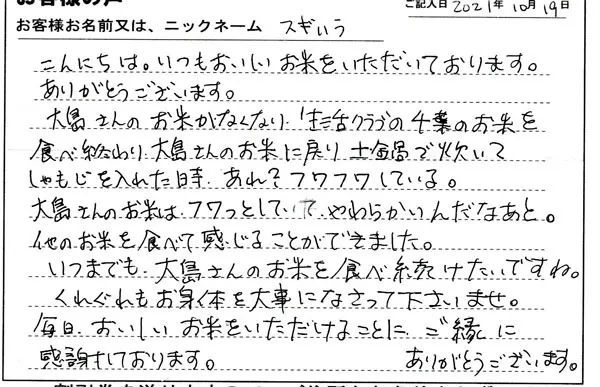 ご記入日 2021年10月19日
お客様お名前又は、ニックネーム スギいう
こんにちは。いつもおいしいお米をいただいております。
ありがとうございます。
大島さんのお米がなくなり、生活クラブの千葉のお米を
食べ終わり、大島さんのお米に戻り、土釜で炊いて
しゃもじを入れた時、あれ?フワフワしている。
大島さんのお米はフワっとしていて、やわらかいんだなあと。
他のお米を食べて感じることができました。
いつまでも大島さんのお米を食べ続けたいですね。
くれぐれもお身体を大事になさって下さいませ。
毎日、おいしいお米をいただけることに、ご縁に
感謝しております。 ありがとうございます。